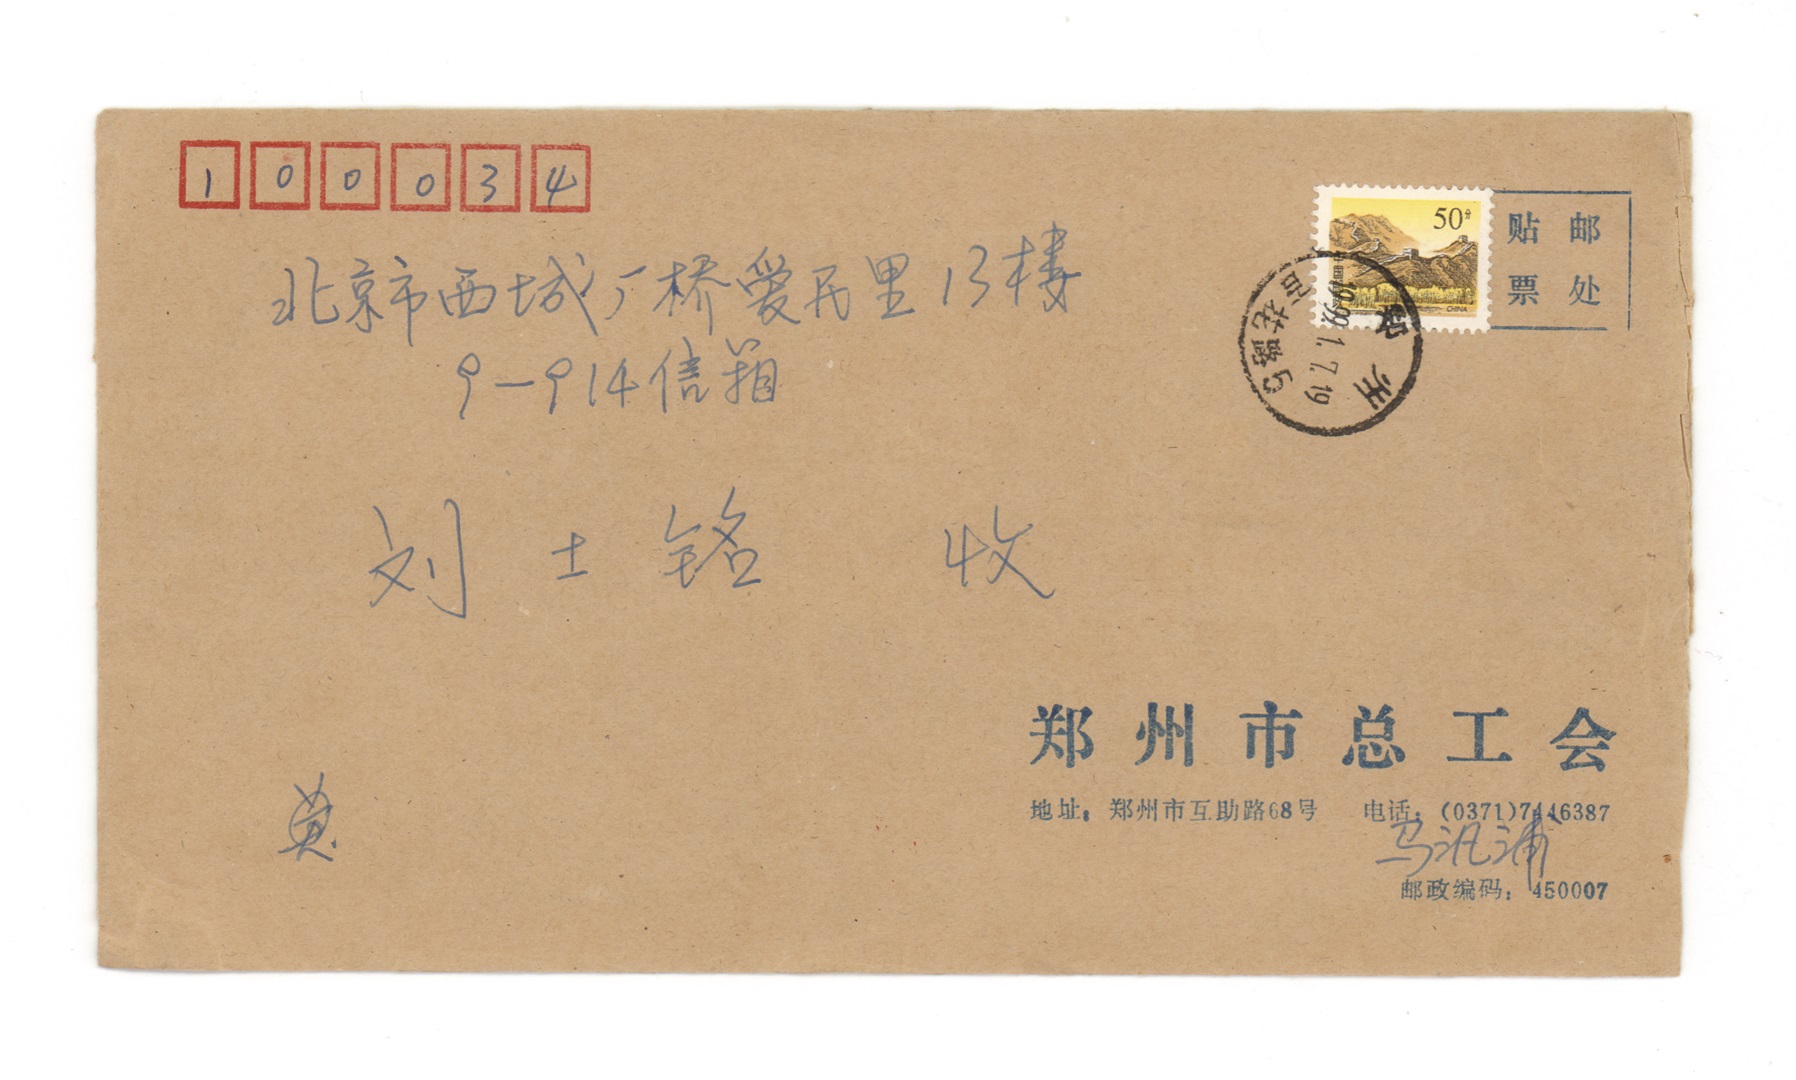 100034
北京市西城厂桥爱民里13楼
9-914信箱
50分
CHINA
贴邮
票处
郑州
1999.1.7.19
百花路5
刘士铭 收
郑州市总工会
地址：郑州市互助路68号 电话：(0371)7446387
马汎浦
邮政编码：450007
黄